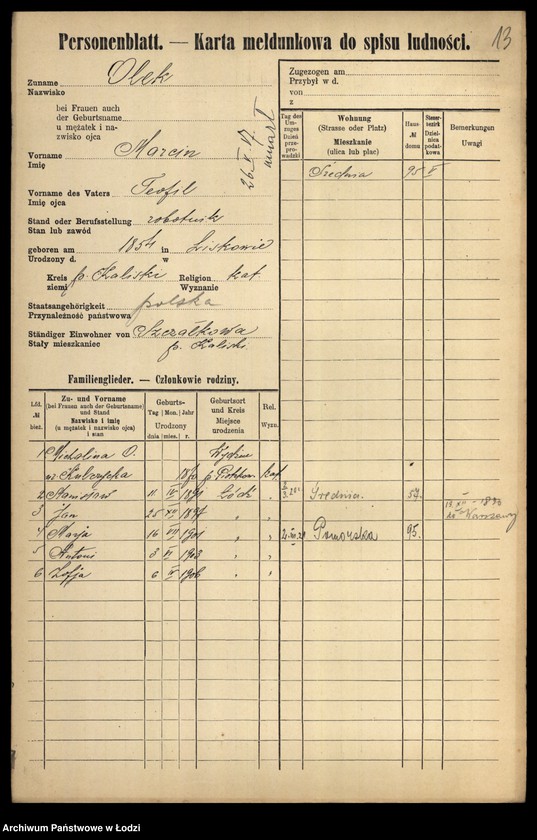 Personenblatt. — Karta meldunkowa do spisu ludności.
13
Zuname Olek
Nazwisko
bei Frauen auch
der Geburtsname
u mężatek i na-
zwisko ojca
Vorname Marcin
Imię
26 X 17
umarł
Vorname des Vaters Teofil
Imię ojca
Stand oder Berufsstellung robotnik
Stan lub zawód
geboren am 1854 in Liskowie
Urodzony d. w
Kreis p. Kaliski Religion kat
ziemi Wyznanie
Staatsangehörigkeit polska
Przynależność państwowa
Ständiger Einwohner von Szczałkowa
Stały mieszkaniec p. Kalisk.
Zugezogen am
Przybył w d.
von
z
Tag des Um-zuges
Dzień prze-pro-wadzki
Wohnung
(Strasse oder Platz)
Mieszkanie
(ulica lub plac)
Haus №
domu
Steuer-bezirk
Dziel-nica podat-kowa
Bemerkungen
Uwagi
Średnia 95 V
Familienglieder. — Członkowie rodziny.
Lfd. № bież.
Zu- und Vorname
(bei Frauen auch der Geburtsname)
und Stand
Nazwisko i imię
(u mężatek i nazwisko ojca)
i stan
Geburts-
Tag Mon. Jahr
Urodzony
dnia mies. r.
Geburtsort
und Kreis
Miejsce
urodzenia
Rel.
Wyzn.
1 Michalina O.
p. Piotrkow. kat.
2 Stanisław 11 IV Łódź " Średnia 57.
3 Jan 25 XII 1897 " "
Warszawy
4 Marja 16 VII 1901 " " Pomorska 95.
5 Antoni 3 VI 1903 " "
6 Zofja 6 IV 1906 " "
Archiwum Państwowe w Łodzi